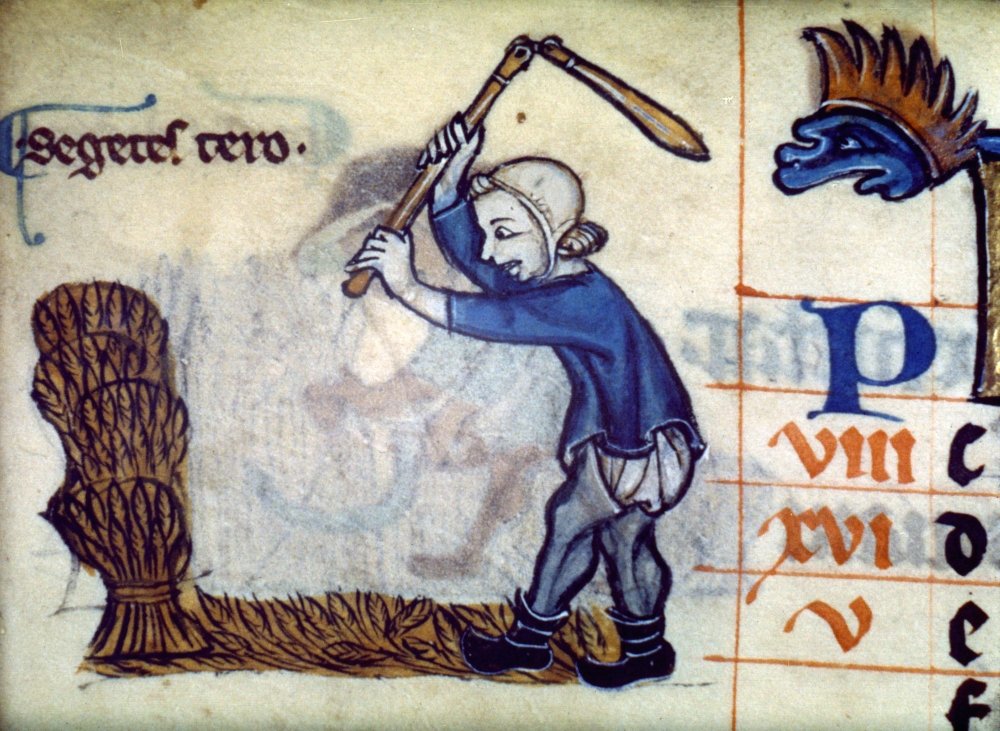 ·segetes tero·
P
VIII c
XVI d
V e
f